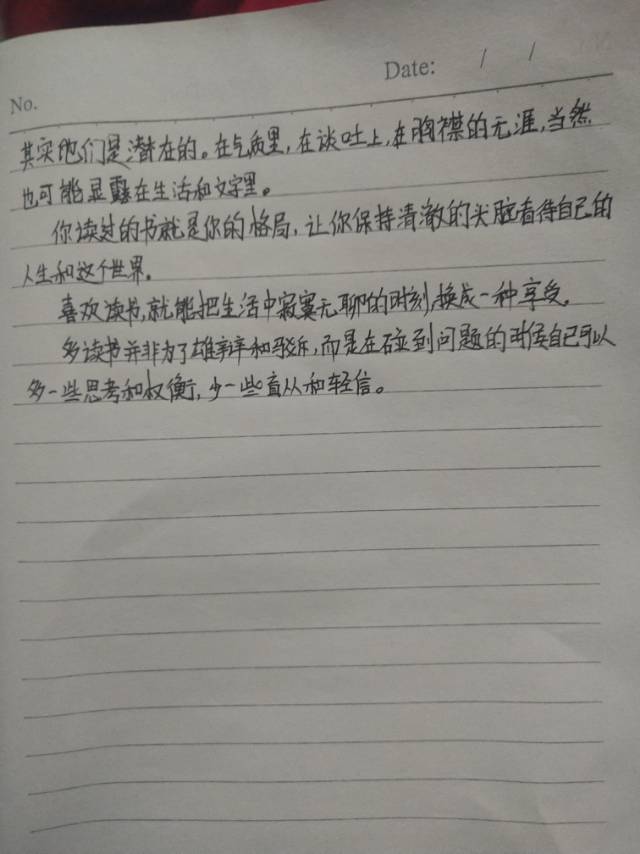 No.
Date: / /
其实他们是潜在的。在气质里,在谈吐上,在胸襟的无涯,当然
也可能显露在生活和文字里。
你读过的书就是你的格局,让你保持清澈的头脑看待自己的
人生和这个世界。
喜欢读书,就能把生活中寂寞无聊的时刻,换成一种享受。
多读书并非为了雄辩和驳斥,而是在碰到问题的时候自己可以
多一些思考和权衡,少一些盲从和轻信。